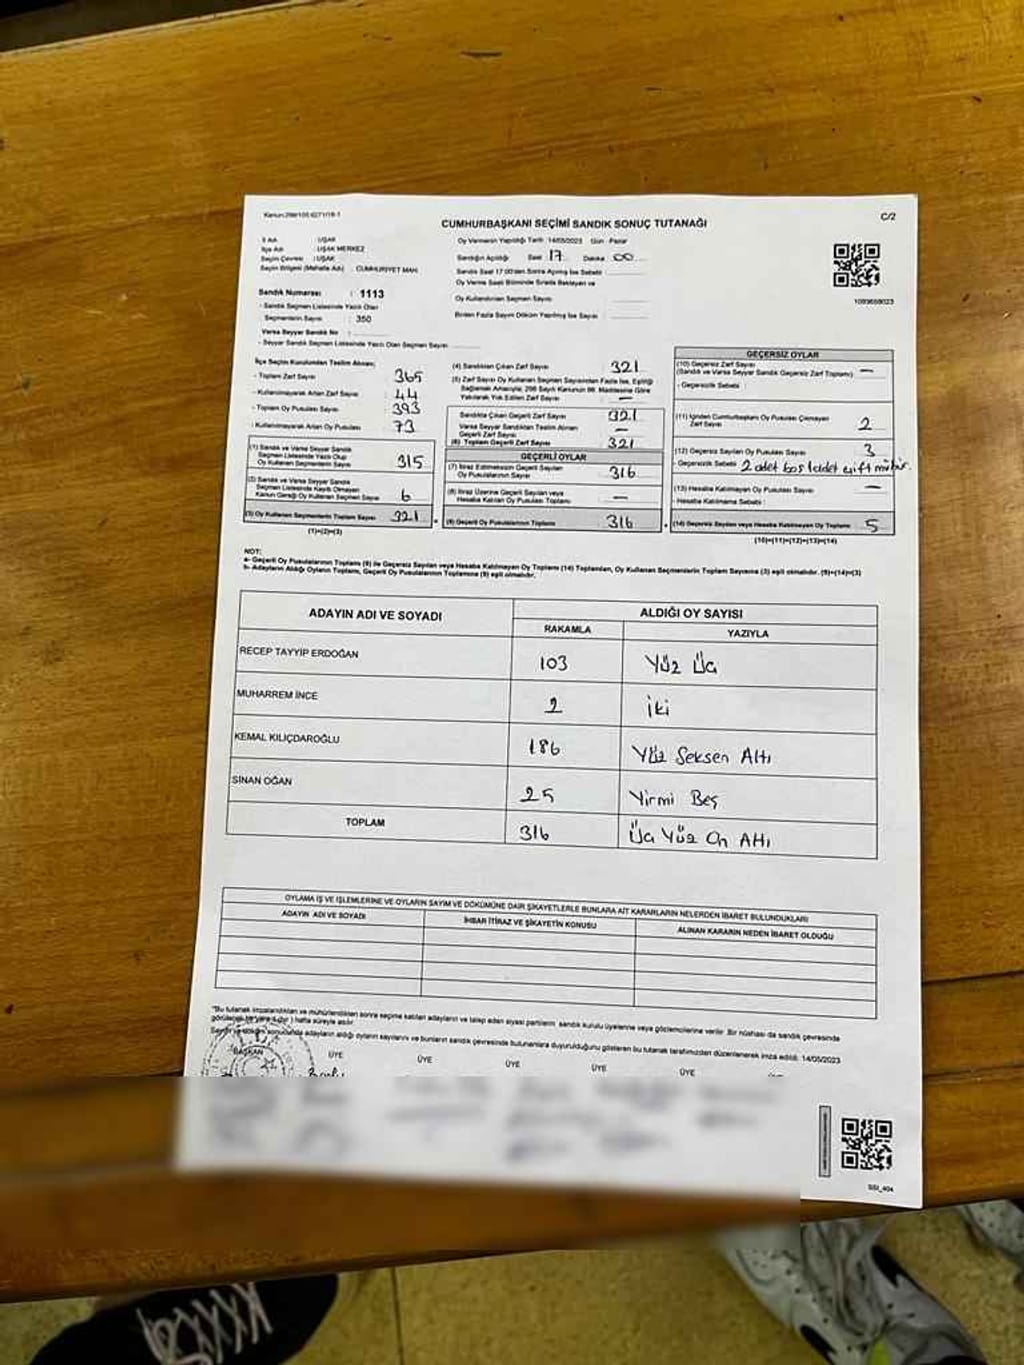 C/2
CUMHURBAŞKANI SEÇİMİ SANDIK SONUÇ TUTANAĞI
İl Adı : UŞAK
İlçe Adı : UŞAK MERKEZ
Seçim Çevresi : UŞAK
Seçim Bölgesi (Mahalle Adı) : CUMHURİYET MAH.
Sandık Numarası : 1113
- Sandık Seçmen Listesinde Yazılı Olan
Seçmenlerin Sayısı : 350
Varsa Seyyar Sandık No :
- Seyyar Sandık Seçmen Listesinde Yazılı Olan Seçmen Sayısı
Oy Vermenin Yapıldığı Tarih :14/05/2023 Gün : Pazar
Sandığın Açıldığı Saat 17 Dakika 00
Sandık Saat 17:00'den Sonra Açılmış İse Sebebi :
Oy Verme Saati Bitiminde Sırada Bekleyen ve
Oy Kullandırılan Seçmen Sayısı
Birden Fazla Sayım Döküm Yapılmış İse Sayısı :
İlçe Seçim Kurulundan Teslim Alınan;
- Toplam Zarf Sayısı 365
- Kullanılmayarak Artan Zarf Sayısı 44
- Toplam Oy Pusulası Sayısı 393
- Kullanılmayarak Artan Oy Pusulası 73
(1) Sandık ve Varsa Seyyar Sandık
Seçmen Listesinde Yazılı Olup
Oy Kullanan Seçmenlerin Sayısı 315
(2) Sandık ve Varsa Seyyar Sandık
Seçmen Listesinde Kayıtlı Olmayan
Kanun Gereği Oy Kullanan Seçmen Sayısı 6
(3) Oy Kullanan Seçmenlerin Toplam Sayısı 321
(1)+(2)=(3)
(4) Sandıktan Çıkan Zarf Sayısı 321
(5) Zarf Sayısı Oy Kullanan Seçmen Sayısından Fazla İse, Eşitliği
Sağlamak Amacıyla, 298 Sayılı Kanunun 98. Maddesine Göre
Yakılarak Yok Edilen Zarf Sayısı —
Sandıkta Çıkan Geçerli Zarf Sayısı 321
Varsa Seyyar Sandıktan Teslim Alınan
Geçerli Zarf Sayısı —
(6) Toplam Geçerli Zarf Sayısı 321
GEÇERLİ OYLAR
(7) İtiraz Edilmeksizin Geçerli Sayılan
Oy Pusulalarının Sayısı 316
(8) İtiraz Üzerine Geçerli Sayılan veya
Hesaba Katılan Oy Pusulası Toplamı —
(9) Geçerli Oy Pusulalarının Toplamı 316
1089658023
GEÇERSİZ OYLAR
(10) Geçersiz Zarf Sayısı
(Sandık ve Varsa Seyyar Sandık Geçersiz Zarf Toplamı) —
- Geçersizlik Sebebi :
(11) İçinden Cumhurbaşkanı Oy Pusulası Çıkmayan
Zarf Sayısı 2
(12) Geçersiz Sayılan Oy Pusulası Sayısı 3
- Geçersizlik Sebebi 2 adet boş 1 adet çift mühür.
(13) Hesaba Katılmayan Oy Pusulası Sayısı —
- Hesaba Katılmama Sebebi :
(14) Geçersiz Sayılan veya Hesaba Katılmayan Oy Toplamı 5
(10)+(11)+(12)+(13)=(14)
NOT:
a- Geçerli Oy Pusulalarının Toplamı (9) ile Geçersiz Sayılan veya Hesaba Katılmayan Oy Toplamı (14) Toplamları, Oy Kullanan Seçmenlerin Toplam Sayısına (3) eşit olmalıdır. (9)+(14)=(3)
b- Adayların Aldığı Oyların Toplamı, Geçerli Oy Pusulalarının Toplamına (9) eşit olmalıdır.
ADAYIN ADI VE SOYADI ALDIĞI OY SAYISI
RAKAMLA YAZIYLA
RECEP TAYYİP ERDOĞAN 103 Yüz Üç
MUHARREM İNCE 2 İki
KEMAL KILIÇDAROĞLU 186 Yüz Seksen Altı
SİNAN OĞAN 25 Yirmi Beş
TOPLAM 316 Üç Yüz On Altı
OYLAMA İŞ VE İŞLEMLERİNE VE OYLARIN SAYIM VE DÖKÜMÜNE DAİR ŞİKAYETLERLE BUNLARA AİT KARARLARIN NELERDEN İBARET BULUNDUKLARI
ADAYIN ADI VE SOYADI İHBAR İTİRAZ VE ŞİKAYETİN KONUSU ALINAN KARARIN NEDEN İBARET OLDUĞU
"Bu tutanak imzalandıktan ve mühürlendikten sonra seçime katılan adayların ve talep eden siyasi partilerin sandık kurulu üyelerine veya gözlemcilerine verilir. Bir nüshası da sandık çevresinde
hafta süreyle asılır.
sonucunda adayların aldığı oyların sayılarını ve bunların sandık çevresinde bulunanlara duyurulduğunu gösteren bu tutanak tarafımızdan düzenlenerek imza edildi. 14/05/2023
BAŞKAN ÜYE ÜYE ÜYE ÜYE ÜYE
SSI_404